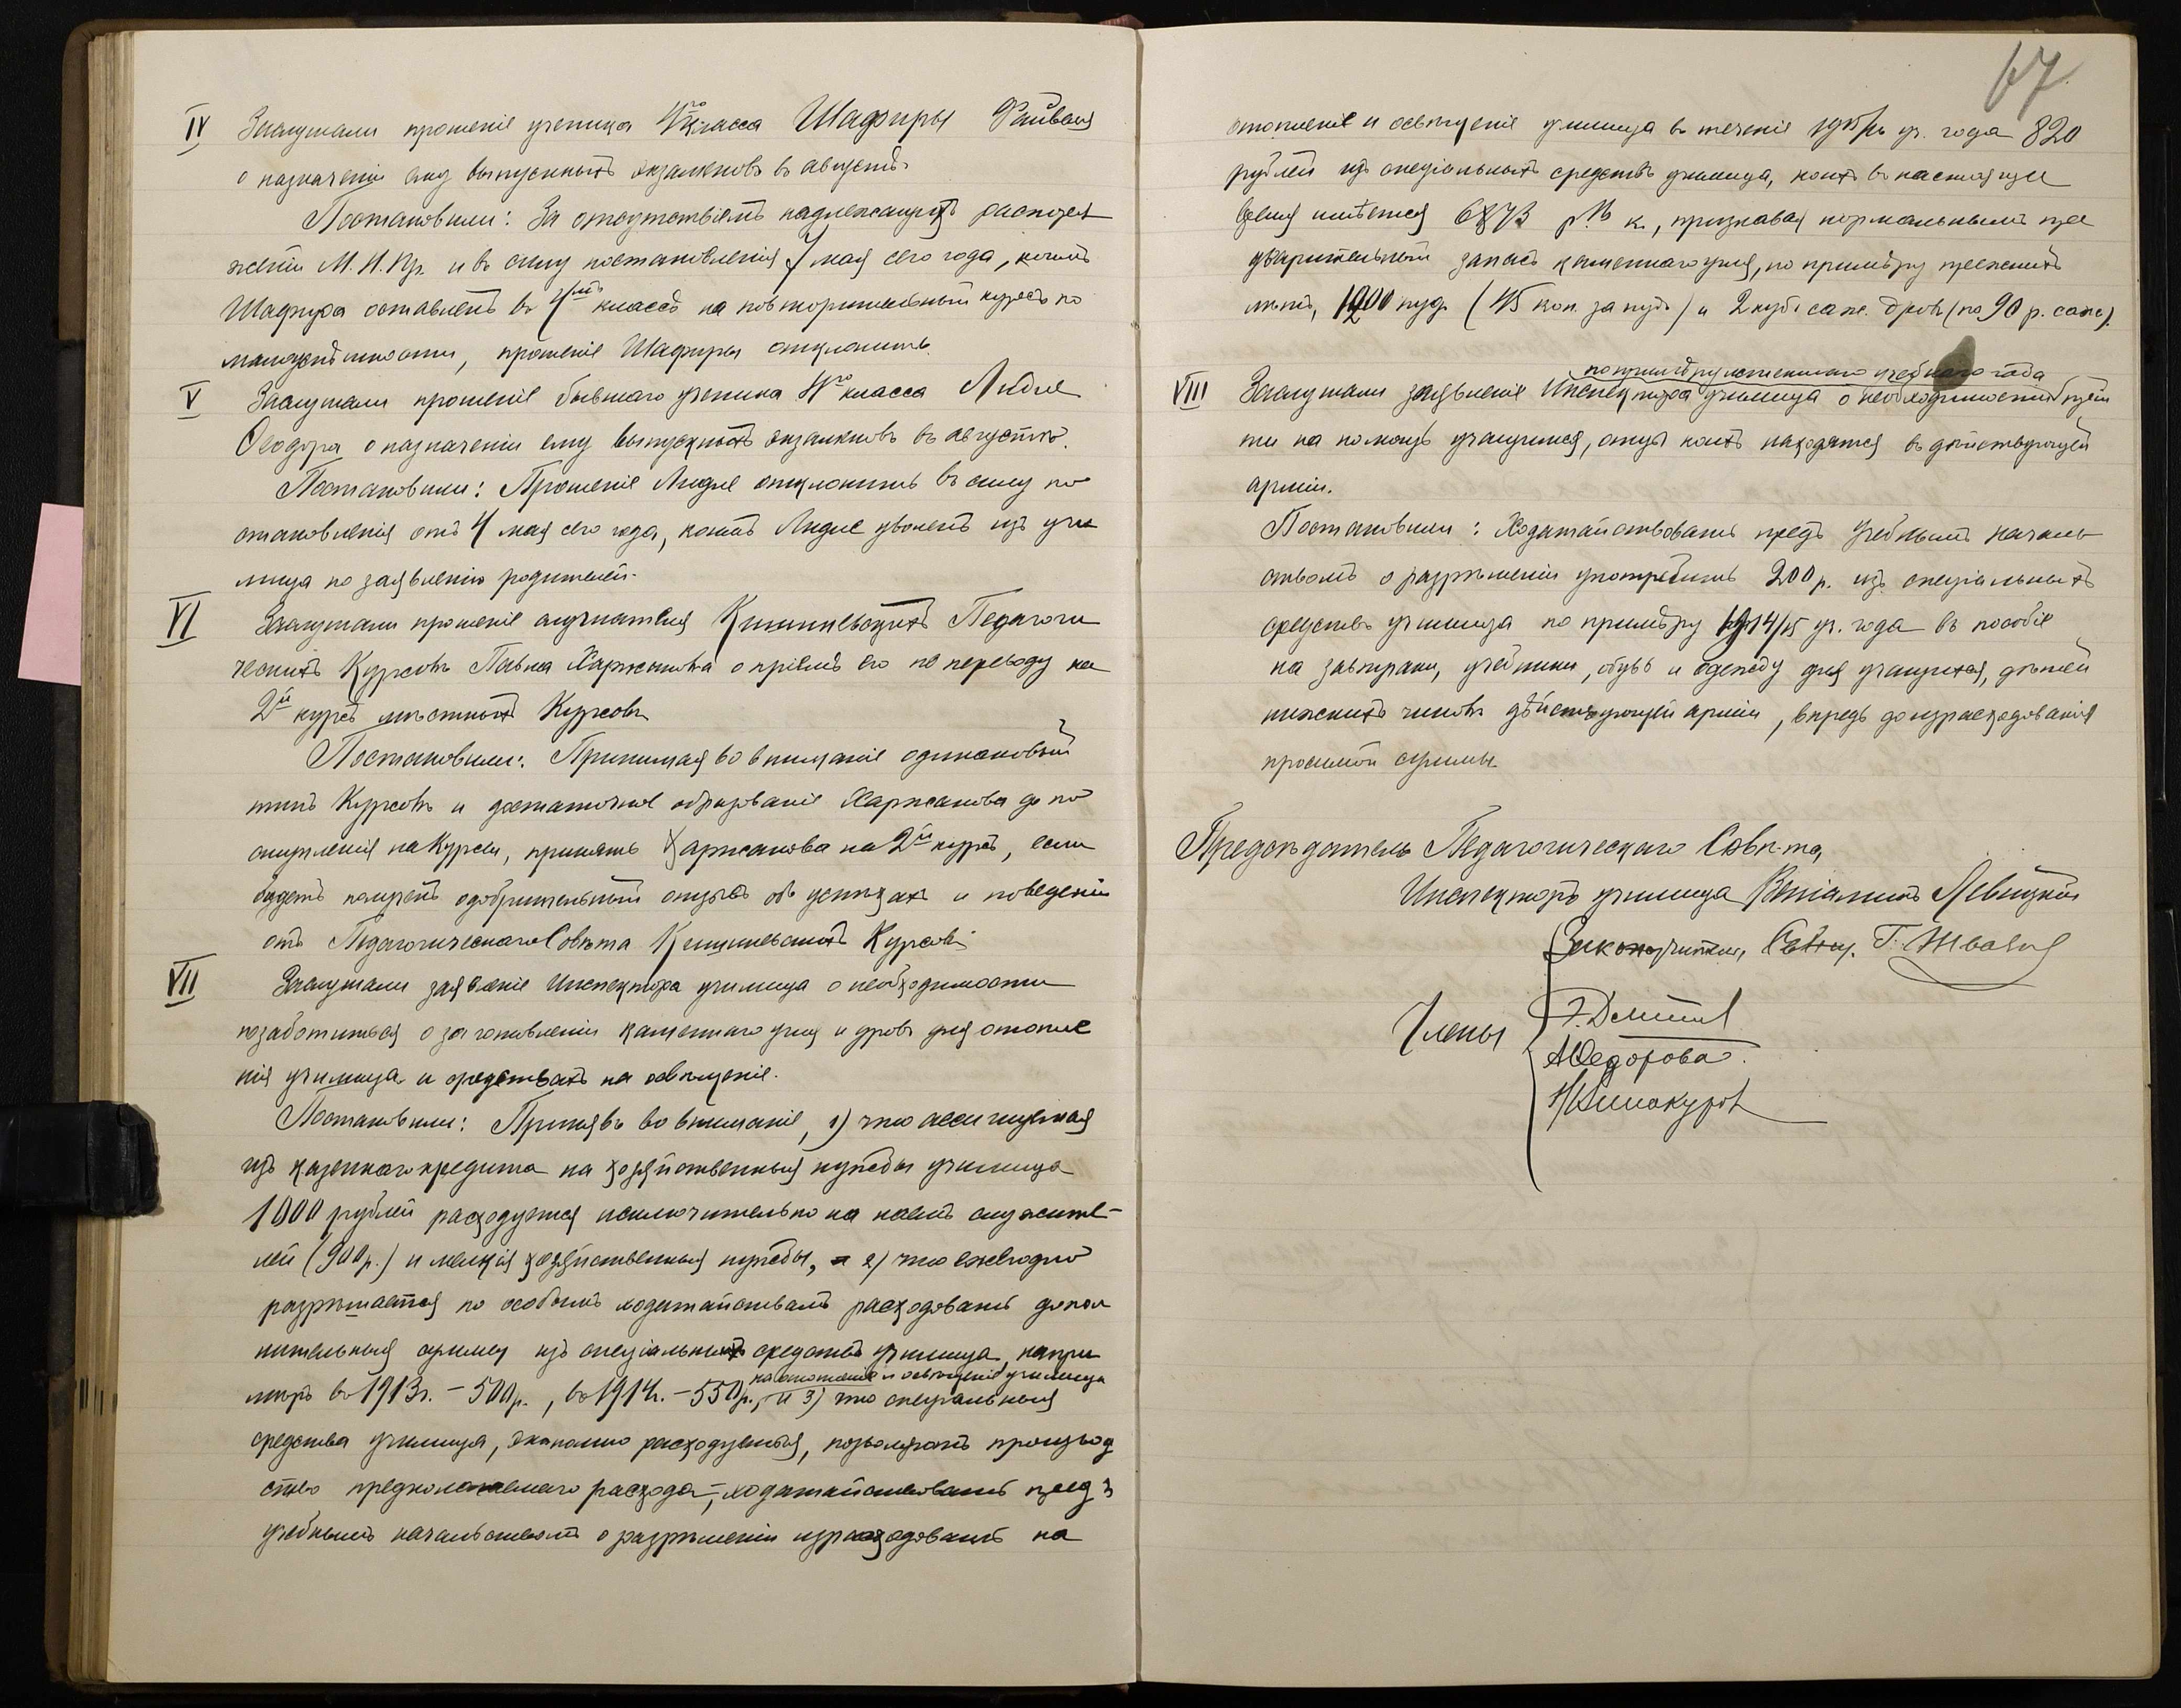 IV Заслушали прошеніе ученика 4го класса Шафиры Файвеля
о назначеніи ему выпускныхъ экзаменовъ въ августѣ.
Постановили: За отсутствіемъ надлежащихъ распоря
женій М. Н. Пр. и въ силу постановленія 7 мая сего года, коимъ
Шафира оставленъ въ 4мъ классѣ на повторительный курсъ по
малоуспѣшности, прошеніе Шафиры отклонить.
V Заслушали прошеніе бывшаго ученика 4го класса Лидле
Ѳеодора о назначеніи ему выпускныхъ экзаменовъ въ августѣ.
Постановили: Прошеніе Лидле отклонить въ силу по
становленія отъ 4 мая сего года, коимъ Лидле уволенъ изъ учи
лища по заявленію родителей.
VI Заслушали прошеніе слушателя Кишиневскихъ Педагоги
ческихъ Курсовъ Павла Харжанова о пріемѣ его по переводу на
2й курсъ мѣстныхъ Курсовъ
Постановили: Принимая во вниманіе одинаковый
типъ Курсовъ и достаточное образованіе Харжанова до по
ступленія на Курсы, принять Харжанова на 2й курсъ, если
будетъ полученъ одобрительный отзывъ объ успѣхахъ и поведеніи
отъ Педагогическаго Совѣта Кишиневскихъ Курсовъ
VII Заслушали заявленіе Инспектора училища о необходимости
позаботиться о заготовленіи каменнаго угля и дровъ для отопле
нія училища и средствахъ на освѣщеніе.
Постановили: Принявъ во вниманіе, 1) что ассигнуемая
изъ казеннаго кредита на хозяйственныя нужды училища
1000 рублей расходуется исключительно на наемъ служите-
лей (900р.) и мелкія хозяйственныя нужды, 2) что ежегодно
разрѣшается по особымъ ходатайствамъ расходовать допол
нительныя суммы изъ спеціальныхъ средствъ училища, напри
на отопленіе и освѣщеніе училища
мѣръ въ 1913г. - 500р., въ 1914г. - 550р., и 3) что спеціальныя
средства училища, экономно расходуемыя, позволяютъ производ
ство предполагаемаго расхода, - ходатайствовать предъ
учебнымъ начальствомъ о разрѣшеніи израсходовать на
67
отопленіе и освѣщеніе училища въ теченіе 1915/16 уч. года 820
рублей изъ спеціальныхъ средствъ училища, коихъ въ настоящее
время имѣется 6873 р. к., признавая нормальнымъ пре
дварительный запасъ каменнаго угля, по примѣру прежнихъ
лѣтъ, 1200 пуд. (45 коп. за пудъ) и 2 куб. саж. дровъ (по 90 р. саж.).
по примѣру истекшаго учебнаго года
VIII Заслушали заявленіе Инспектора училища о необходимости прій
ти на помощь учащимся, отцы коихъ находятся въ дѣйствующей
арміи.
Постановили: Ходатайствовать предъ Учебнымъ началь
ствомъ о разрѣшеніи употребить 200 р. изъ спеціальныхъ
средствъ училища по примѣру 1914/15 уч. года въ пособіе
на завтраки, учебники, обувь и одежду для учащихся, дѣтей
нижнихъ чиновъ дѣйствующей арміи, впредь до израсходованія
просимой суммы.
Предсѣдатель Педагогическаго Совѣта,
Инспекторъ училища Веніаминъ Левицкій
Законоучитель, Свящ. Г.
Члены
А Ѳедорова.
Винокуров